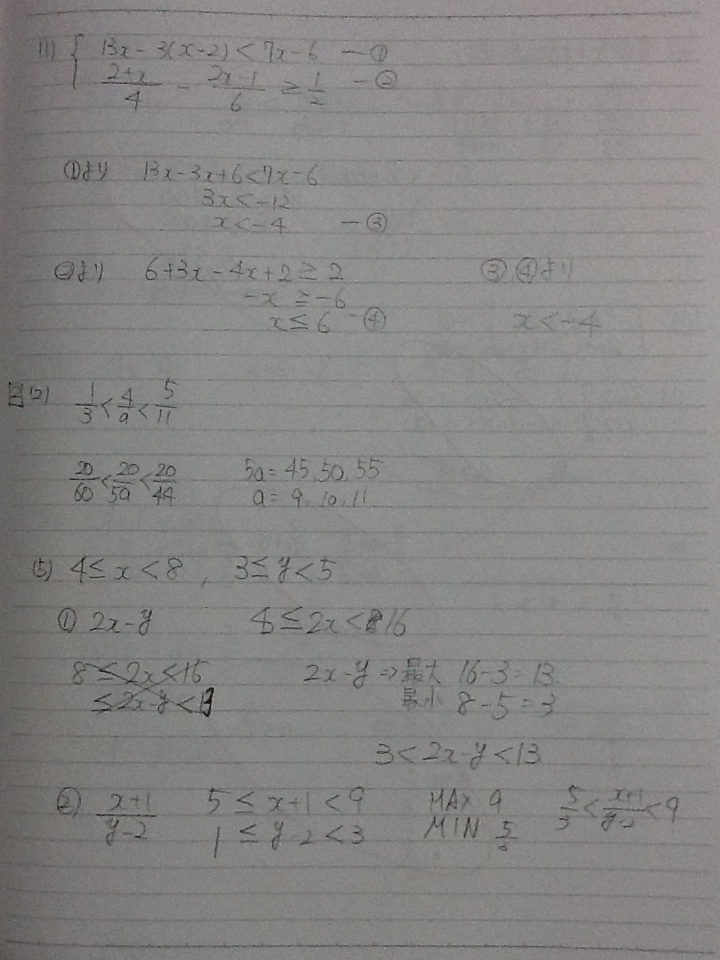 (1) { 13x - 3(x-2) < 7x - 6 —①
(2+x)/4 - (2x-1)/6 ≥ 1/2 —②
①より 13x-3x+6<7x-6
3x<-12
x<-4 —③
②より 6+3x-4x+2≥2
-x ≥-6
x≤6 -④
③④より
x<-4
(2) 1/3 < 4/a < 5/11
20/60 < 20/5a < 20/44
5a = 45, 50, 55
a = 9, 10, 11
(5) 4≤x<8, 3≤y<5
① 2x-y
8≤2x<16
8≤2x<16
≤2x-y<13
2x-y ⇒ 最大 16-3=13
最小 8-5=3
3<2x-y<13
② (x+1)/(y-2)
5≤x+1<9
1≤y-2<3
MAX 9
MIN 5/3
5/3 < (x+1)/(y-2) < 9